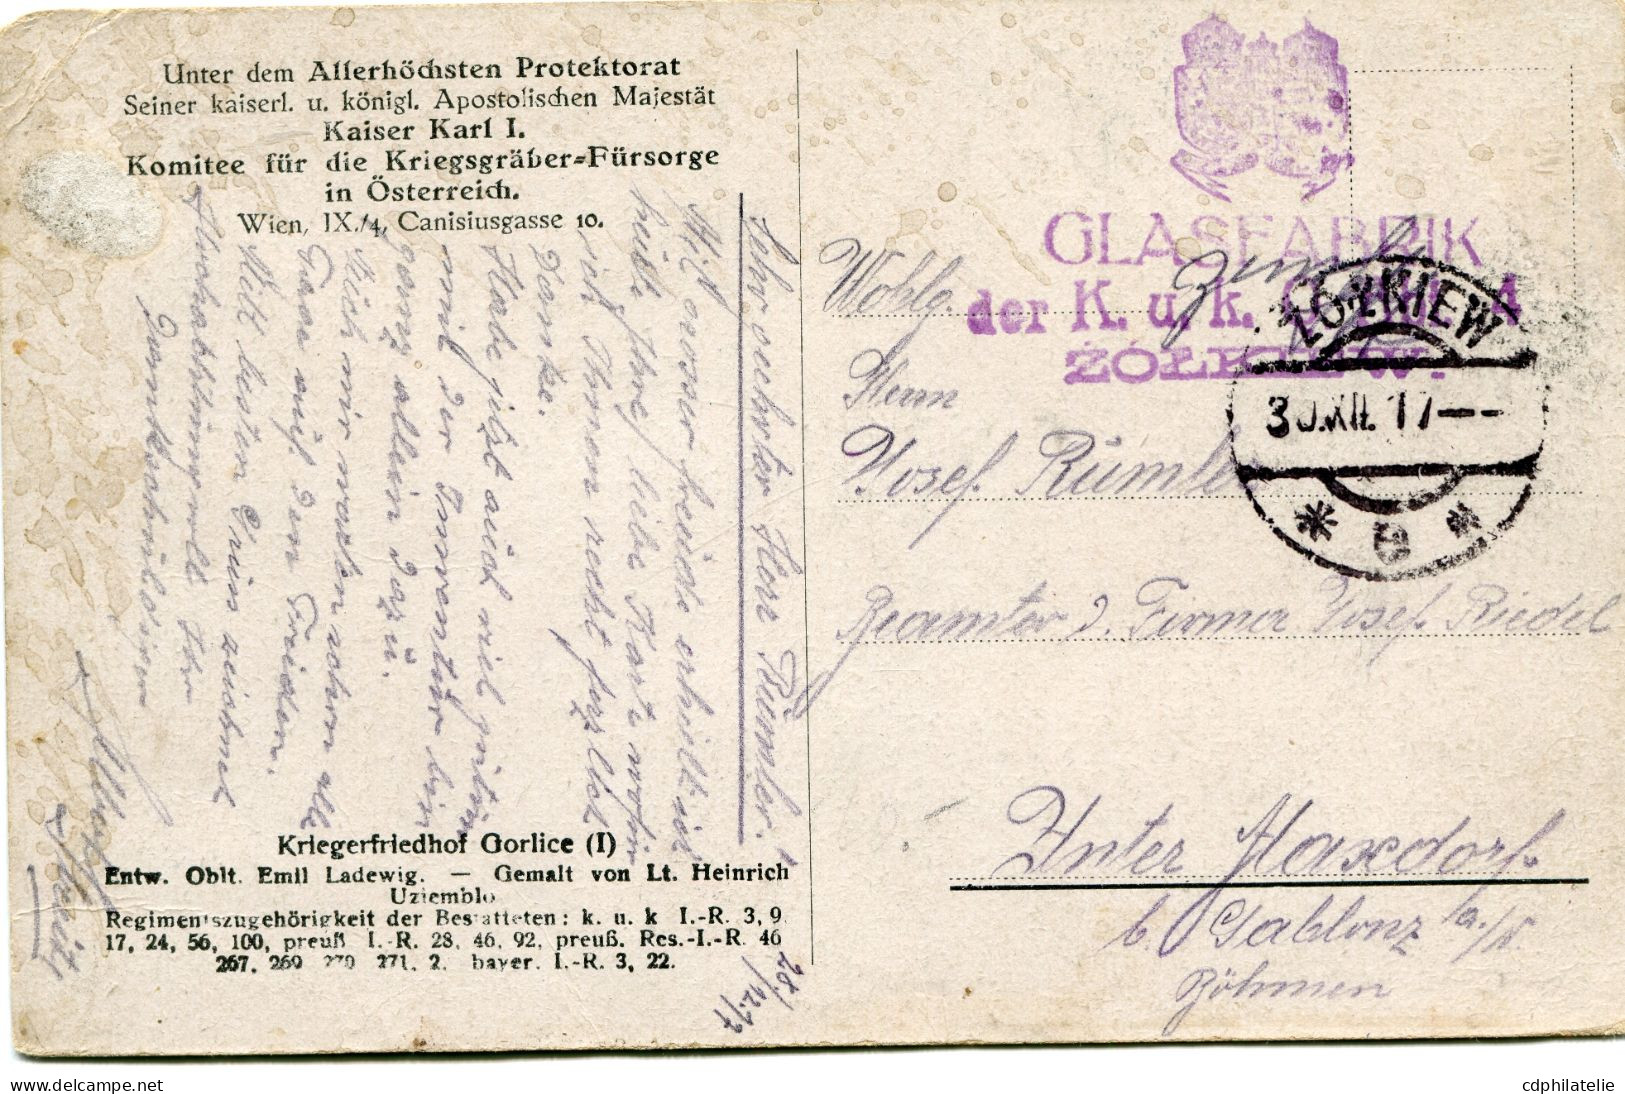 Unter dem Allerhöchsten Protektorat
Seiner kaiserl. u. königl. Apostolischen Majestät
Kaiser Karl I.
Komitee für die Kriegsgräber=Fürsorge
in Österreich.
Wien, IX./4, Canisiusgasse 10.
Sehr geehrter Herr Rümler!
Mit grosser Freude erhielt ich
heute Ihre liebe Karte wofür
ich Ihnen recht herzlich
Danke.
Habe jetzt auch viel zu tun
mit der Inventur bin
ganz allein dazu.
Mich mir warten schon alle
auf den Frieden.
Mit besten Gruss zeichnet
Hochachtungsvoll Ihr
Dankschuldiger
28./12.17
Kriegerfriedhof Gorlice (I)
Entw. Oblt. Emil Ladewig. — Gemalt von Lt. Heinrich
Uziemblo
Regimentszugehörigkeit der Bestatteten: k. u. k I.-R. 3, 9,
17, 24, 56, 100, preuß I.-R. 28, 46, 92, preuß. Res.-I.-R. 46
267, 269 270 271, 2. bayer. I.-R. 3, 22.
GLASFABRIK
der K. u. k.
ŻÓŁKIEW.
ŻÓŁKIEW
30.XII.17
* e *
Wohlg.
Herrn
Josef Rümler
Beamter d. Firma Josef Riedel
Unter Maxdorf
b. Gablonz a./N.
Böhmen
cdphilatelie